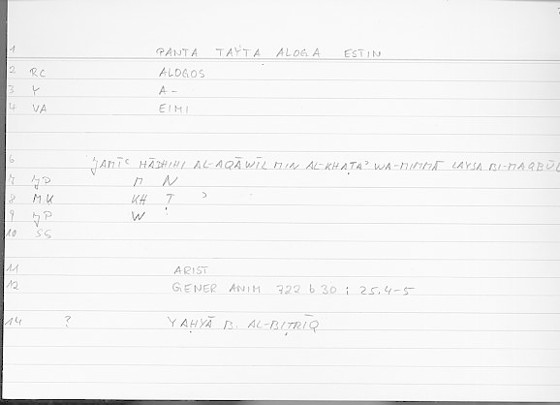 1 PANTA TAYTA ALOGA ESTIN
2 RC ALOGOS
3 Y A-
4 VA EIMI
6 ǦAMĪʿ HĀDHIHI AL-AQĀWĪL MIN AL-KHAṬAʾ WA-MIMMĀ LAYSA BI-MAQBŪL
7 ǦP M N
8 M.K KH Ṭ ʾ
9 ǦP W
10 SS
11 ARIST
12 GENER ANIM 722 b 30 ; 25.4-5
14 ? YAḤYĀ B. AL-BIṬRĪQ